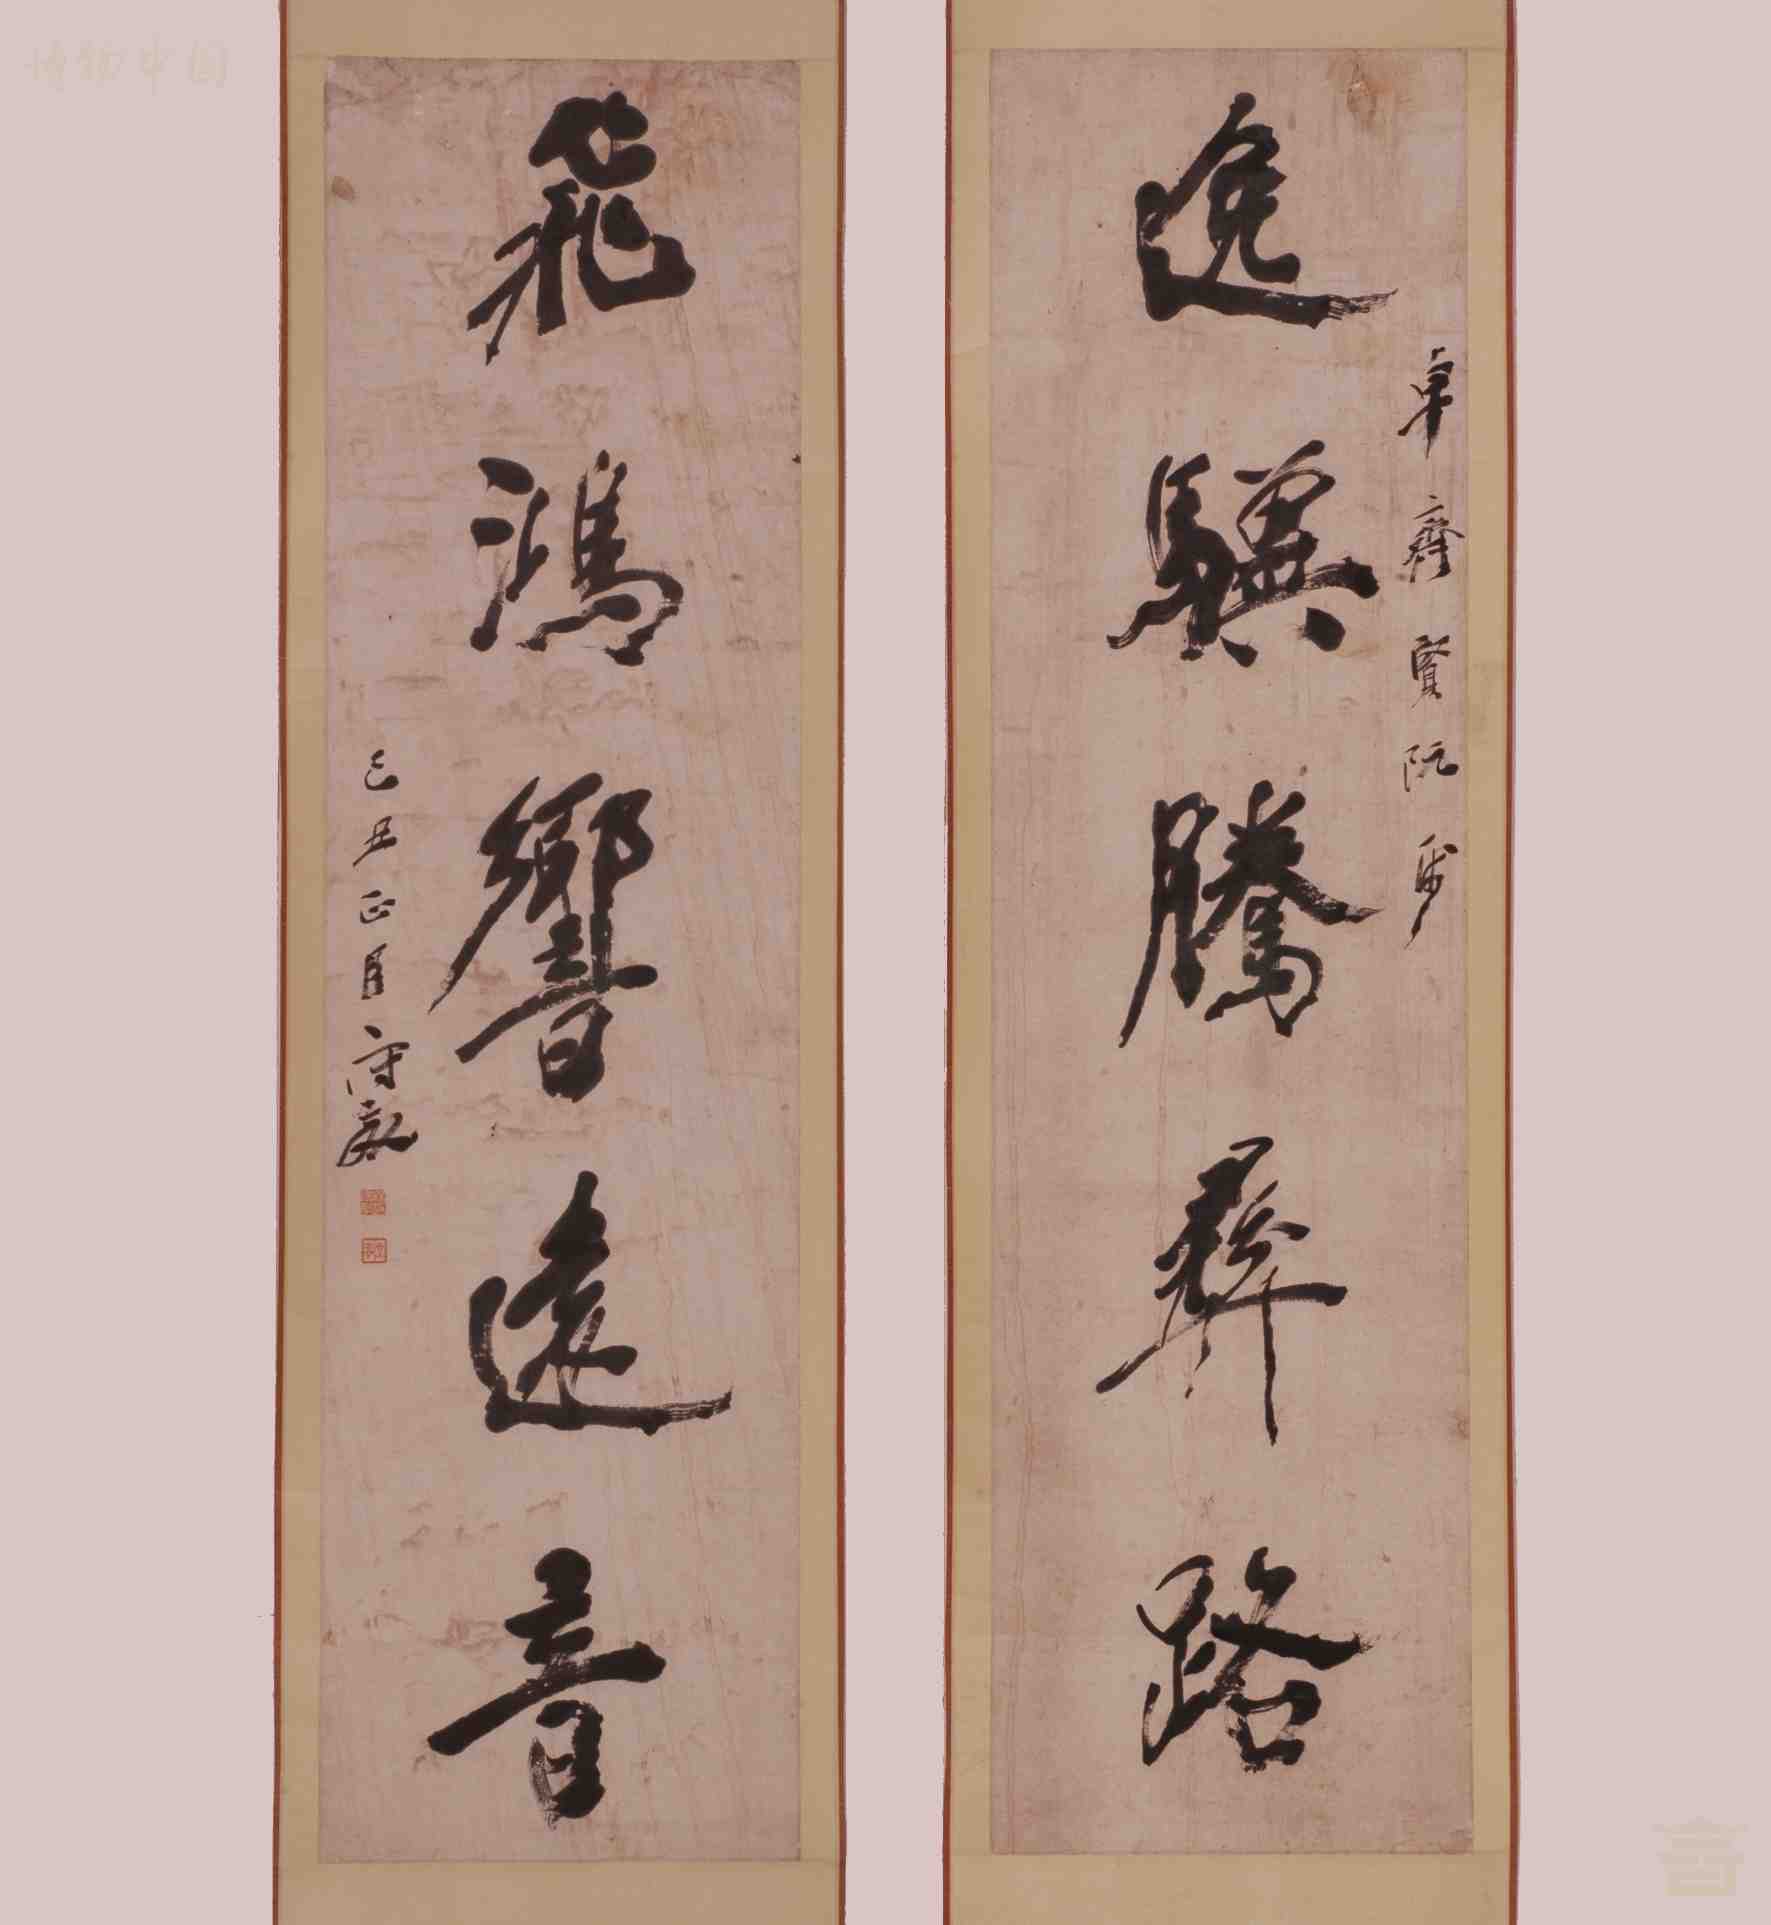 博物中国
逸驥騰彝路
辛齋賢阮
飛鴻響遠音
己丑正月守敬